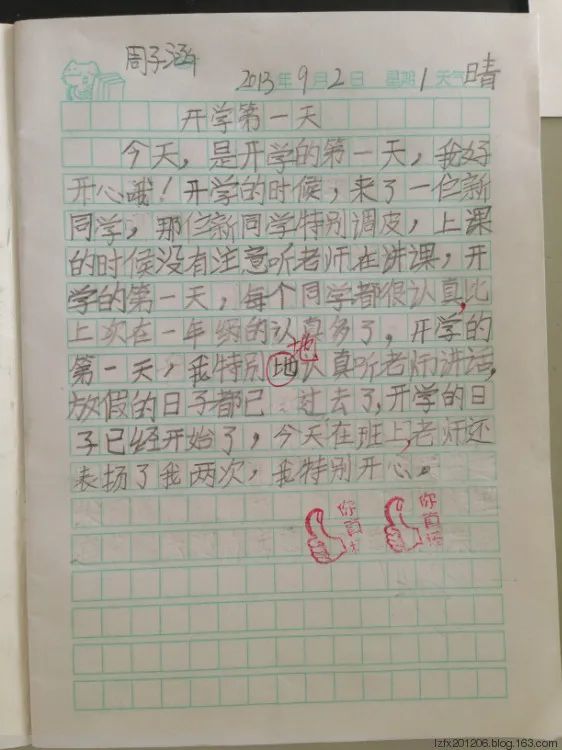 周子涵
2013年9月2日 星期1天气晴
开学第一天
今天，是开学的第一天，我好
开心哦！开学的时候，来了一位新
同学，那位新同学特别调皮，上课
的时候没有注意听老师在讲课，开
学的第一天，每个同学都很认真，比
上次在一年级的认真多了，开学的
地
第一天，我特别地认真听老师讲话，
放假的日子都已 过去了，开学的日
子已经开始了，今天在班上，老师还
表扬了我两次，我特别开心。
你真棒
你真棒
lzfx201206.blog.163.com